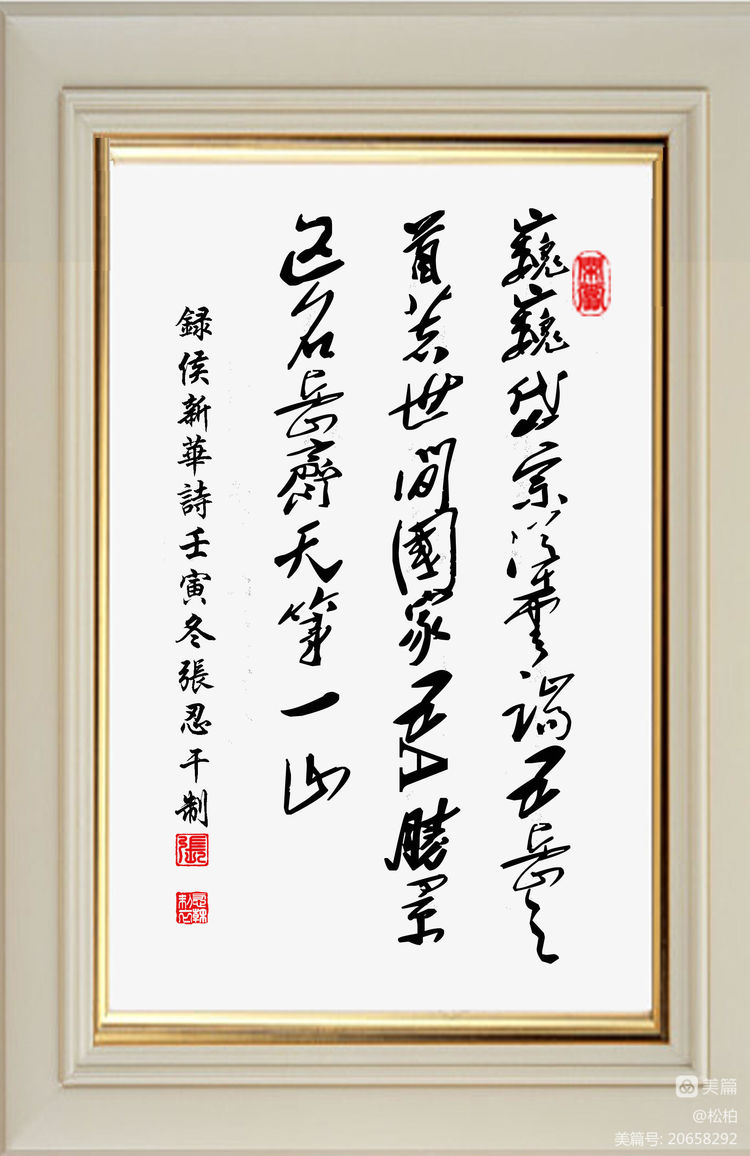 巍巍岱宗從雲端五岳之
首若世間國家五A勝景
区名岳齊天第一山
録侯新華詩壬寅冬張忍干制
張
美篇
@松柏
美篇号: 20658292